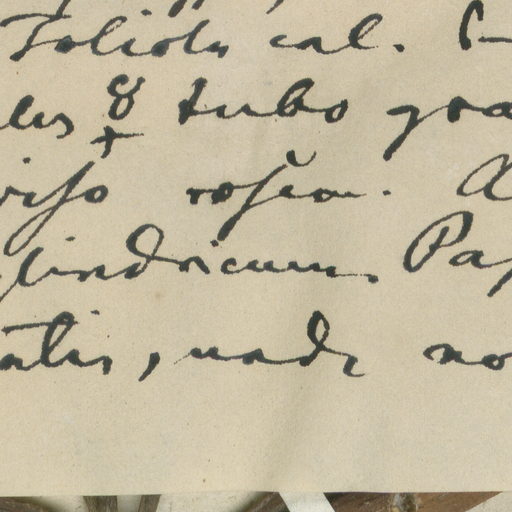 Foliola cal. 5-
les 8 tubo gra
viso rosea. A
ylindricum. Pap
atis, unde no